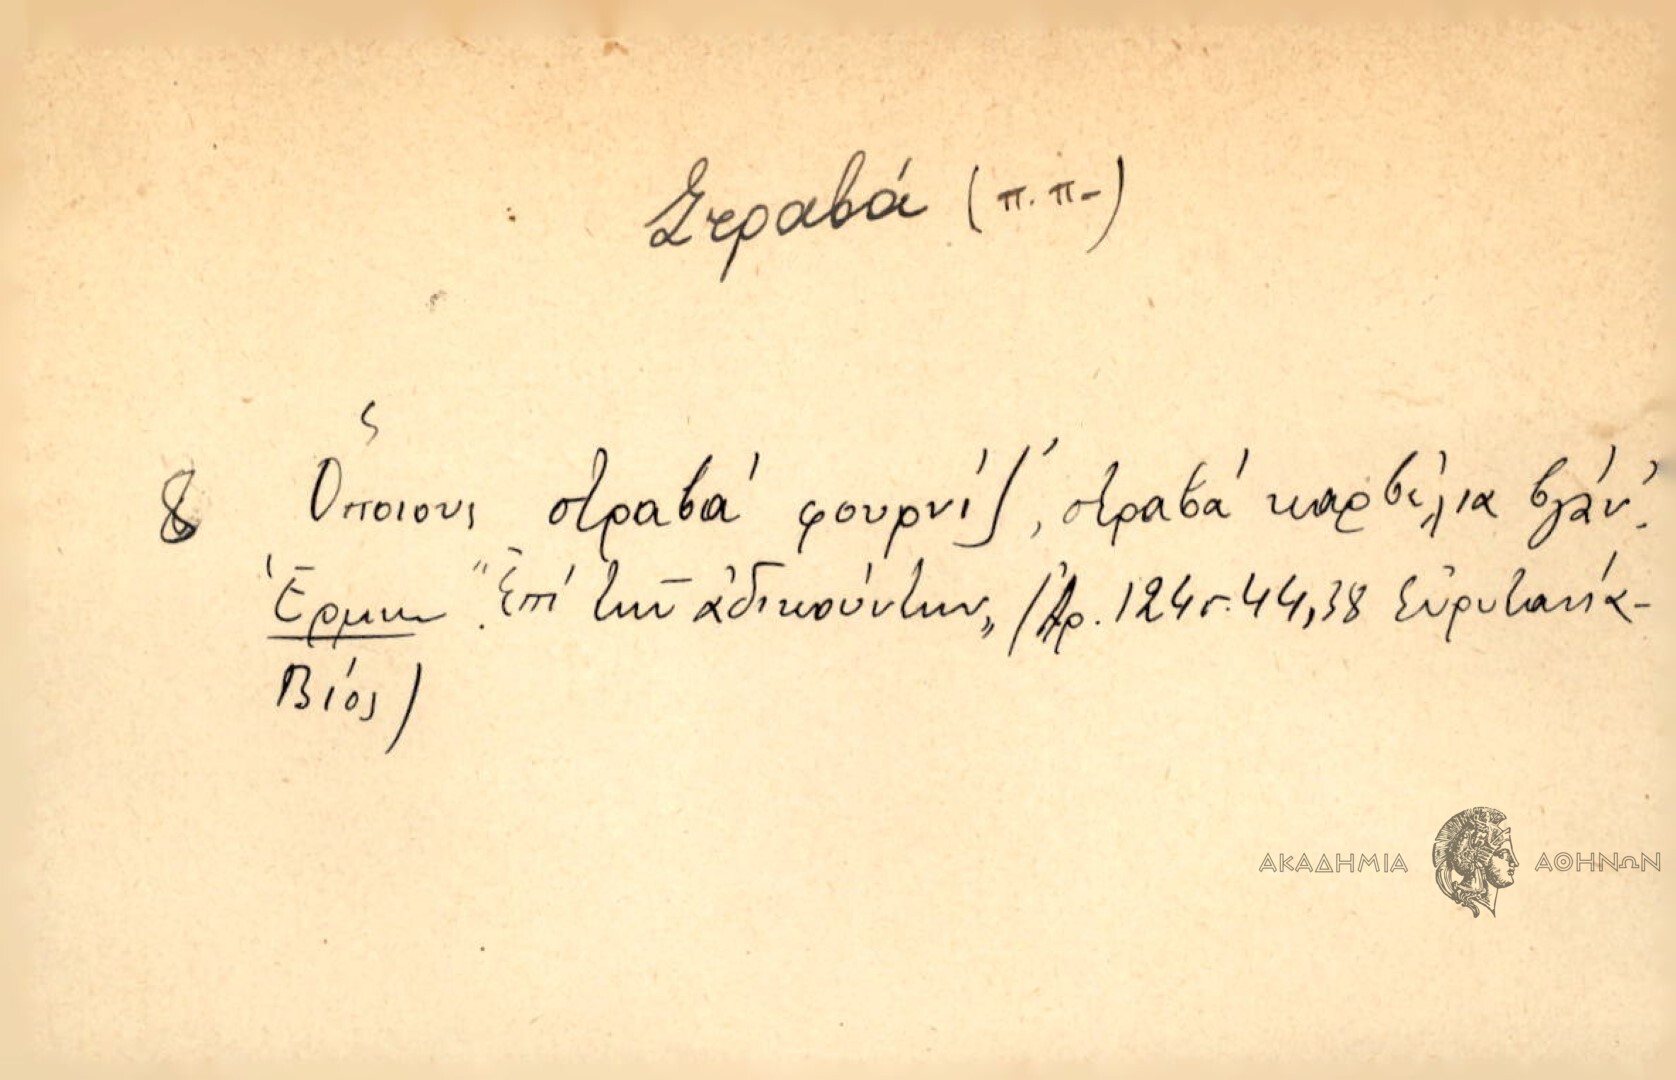 Στραβά (π.π-)
8 Ὅποιους στραβά φουρνίζ', στραβά καρβέλια βγάν'.
Ἑρμην. "Ἐπί τῶν ἀδικούντων" (Ἀρ. 1245. 44, 38 Εὐρυτανία-
Βίος)
ΑΚΑΔΗΜΙΑ ΑΘΗΝΩΝ